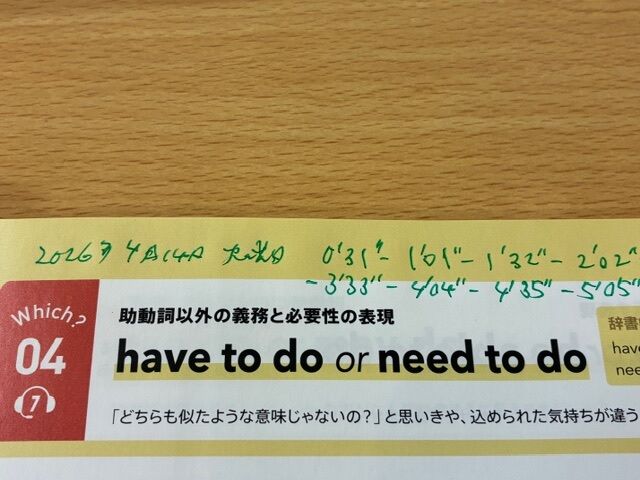 2026年4月14日 火曜日 0'31"- 1'01"- 1'32"- 2'02"
- 3'33"- 4'04"- 4'35"- 5'05"
Which?
04
7
助動詞以外の義務と必要性の表現
have to do or need to do
「どちらも似たような意味じゃないの？」と思いきや、込められた気持ちが違う
辞書
have
nee